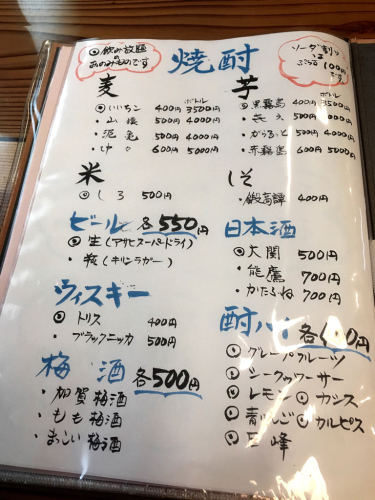 ◎飲み放題
あのみものです
焼酎
ソーダ割り
は
ぷらす100円
です
麦
ボトル
◎いいちこ 400円 3500円
・山猿 500円 4000円
・泥亀 500円 4000円
・ゆの 600円 5000円
芋
ボトル
◎黒霧島 400円 3500円
500円 4000円
・からるっと 500円 4000円
・赤霧島 600円 5000円
米
◎しろ 500円
しそ
・鍛高譚 400円
ビール 各550円
◎生(アサヒスーパードライ)
・瓶(キリンラガー)
日本酒
◎大関 500円
・能鷹 700円
・かたふね 700円
ウィスキー
◎トリス 400円
・ブラックニッカ 500円
酎ハイ 各400円
◎グレープフルーツ
◎シークヮーサー
◎レモン ◎カシス
◎青りんご ◎カルピス
◎巨峰
梅酒 各500円
・加賀梅酒
・もも梅酒
・まっこい梅酒